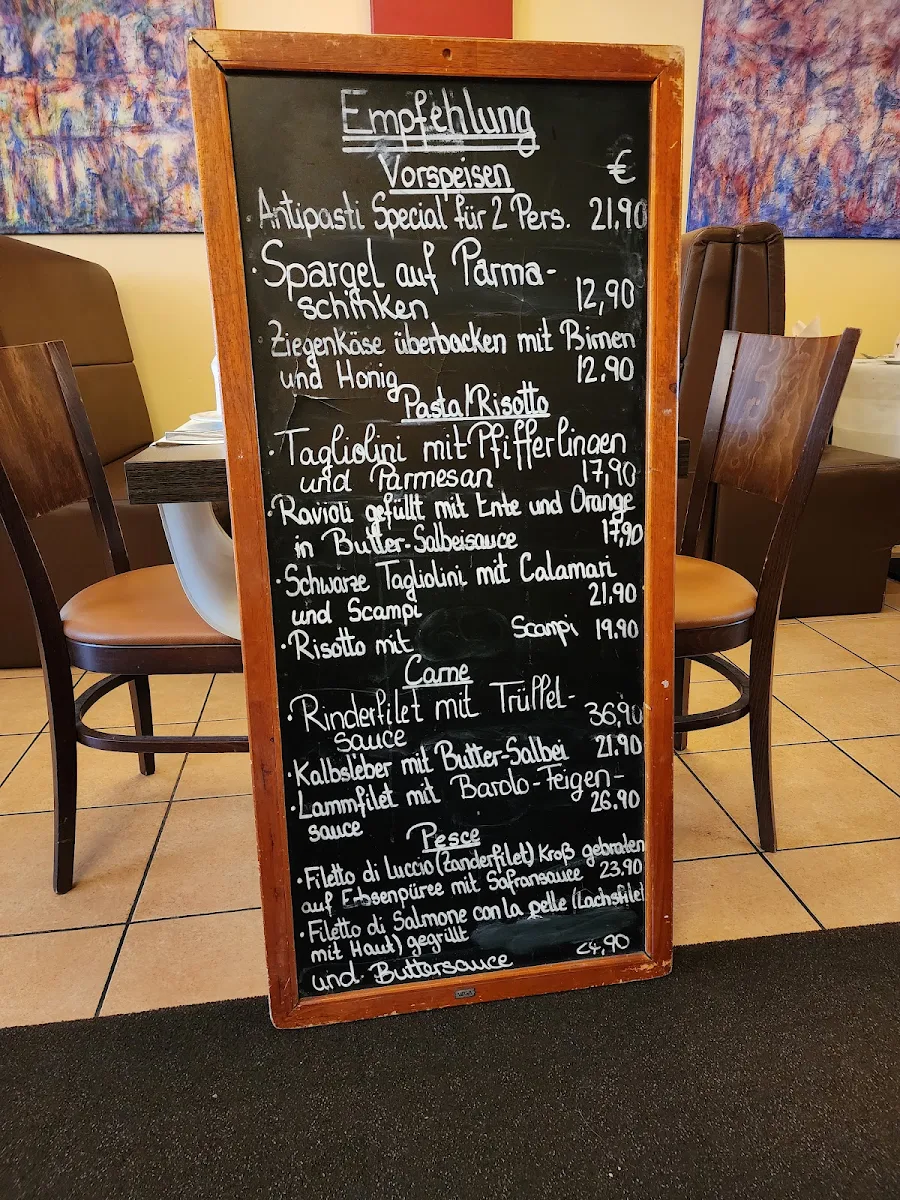 Empfehlung
Vorspeisen €
Antipasti Special für 2 Pers. 21,90
· Spargel auf Parma-
schinken 12,90
Ziegenkäse überbacken mit Birnen
und Honig 12.90
Pasta/Risotto
· Tagliolini mit Pfifferlingen
und Parmesan 17,90
· Ravioli gefüllt mit Ente und Orange
in Butter-Salbeisauce 17,90
· Schwarze Tagliolini mit Calamari
und Scampi 21.90
· Risotto mit Scampi 19.90
Carne
· Rinderfilet mit Trüffel-
sauce 36,90
· Kalbsleber mit Butter-Salbei 21.90
· Lammfilet mit Barolo-Feigen-
sauce 26.90
Pesce
· Filetto di Luccio (Zanderfilet) Kroß gebraten
auf Erbsenpüree mit Safransauce 23.90
· Filetto di Salmone con la pelle (Lachsfilet
mit Haut) gegrillt
und Buttersauce 24,90